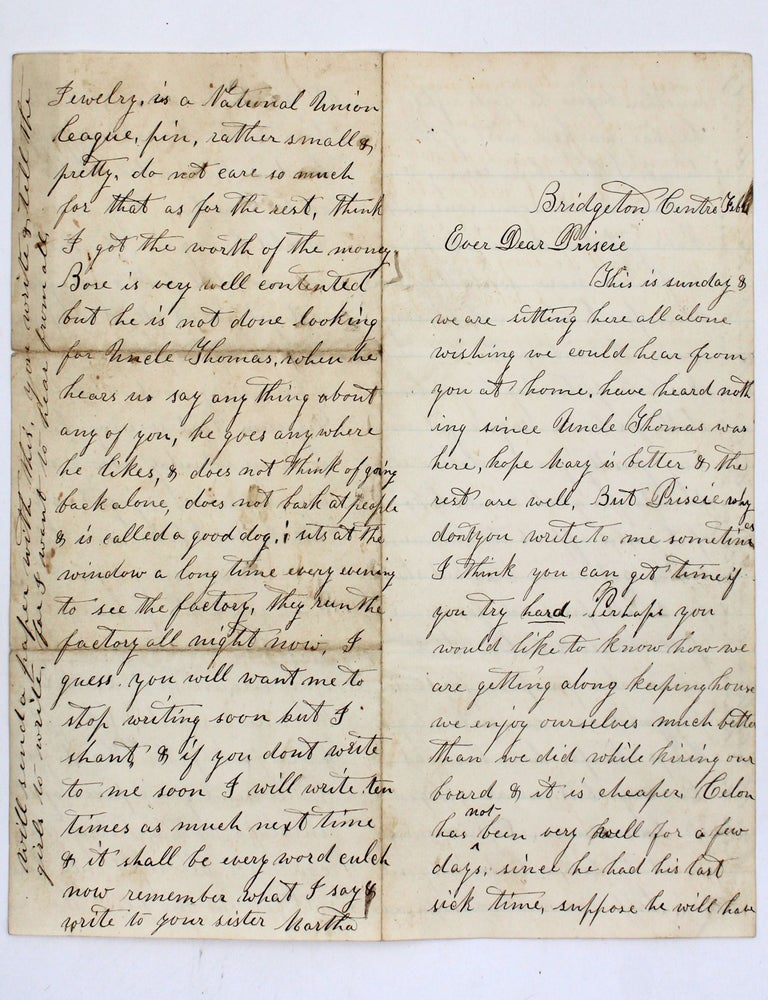 Bridgeton Centre Feb
Ever Dear Priscie
This is sunday &
we are sitting here all alone
wishing we could hear from
you at home, have heard noth
ing since Uncle Thomas was
here, hope Mary is better & the
rest are well, But Priscie why
dont you write to me sometim
I think you can get time if
you try hard. Perhaps you
would like to know how we
are getting along keeping house
we enjoy ourselves much better
than we did while hiring our
board & it is cheaper. Celon
has not been very well for a few
days, since he had his last
sick time, suppose he will have
Jewelry, is a National Union
league, pin, rather small &
pretty, do not care so much
for that as for the rest, think
I got the worth of the money.
Bose is very well contented
but he is not done looking
for Uncle Thomas, when he
hears us say any thing about
any of you, he goes anywhere
he likes, & does not think of going
back alone, does not bark at people
& is called a good dog, sits at the
window a long time every evening
to see the factory, they run the
factory all night now, I
guess you will want me to
stop writing soon but I
shant, & if you dont write
to me soon I will write ten
times as much next time
& it shall be every word culch
now remember what I say &
write to your sister Martha
will send a paper with this, you write & tell the
girls to write, for I want to hear from all